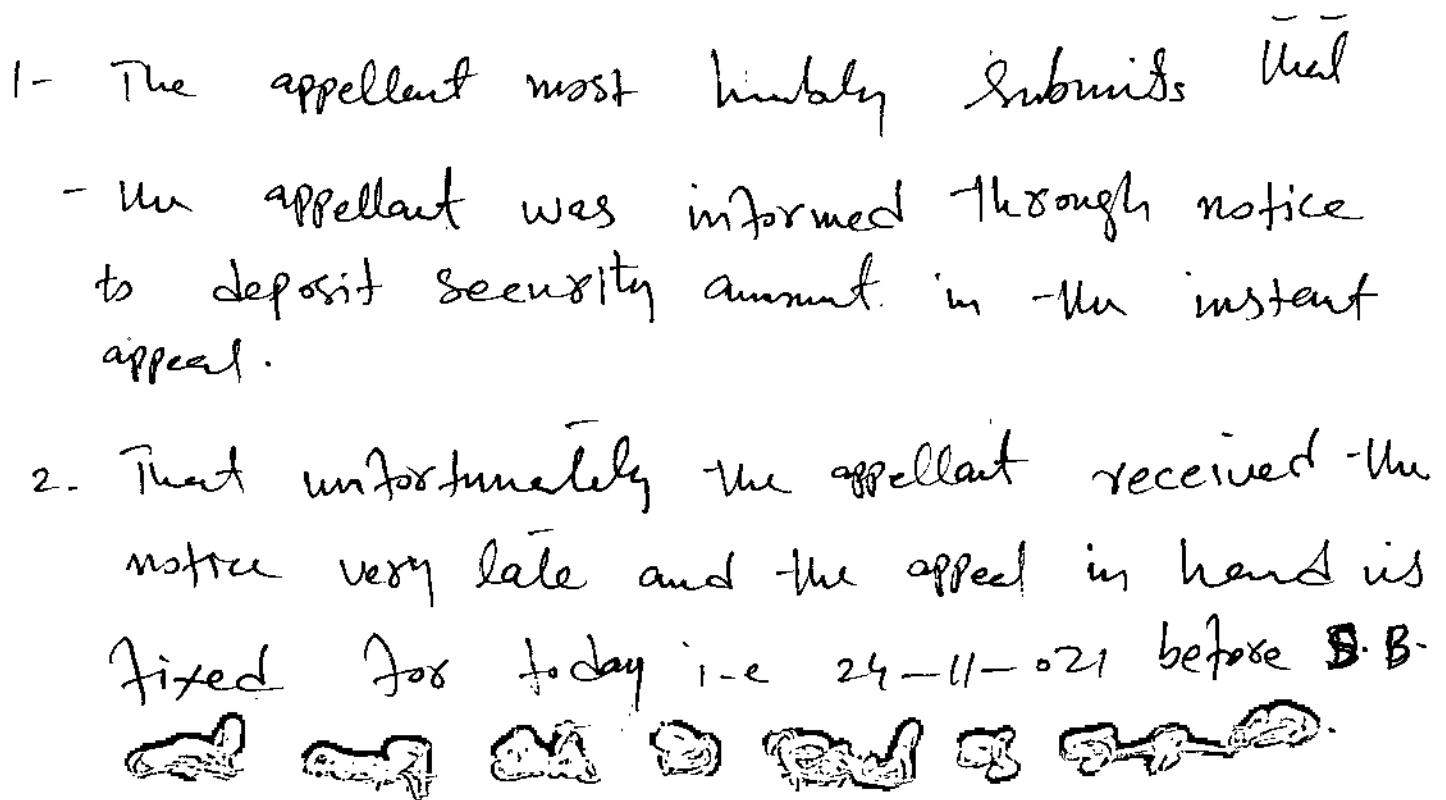 1- The appellant most humbly submits that
- the appellant was informed through notice
to deposit security amount in the instant
appeal.
2. That unfortunately the appellant received the
notice very late and the appeal in hand is
fixed for today i-e 24-11-021 before S.B.